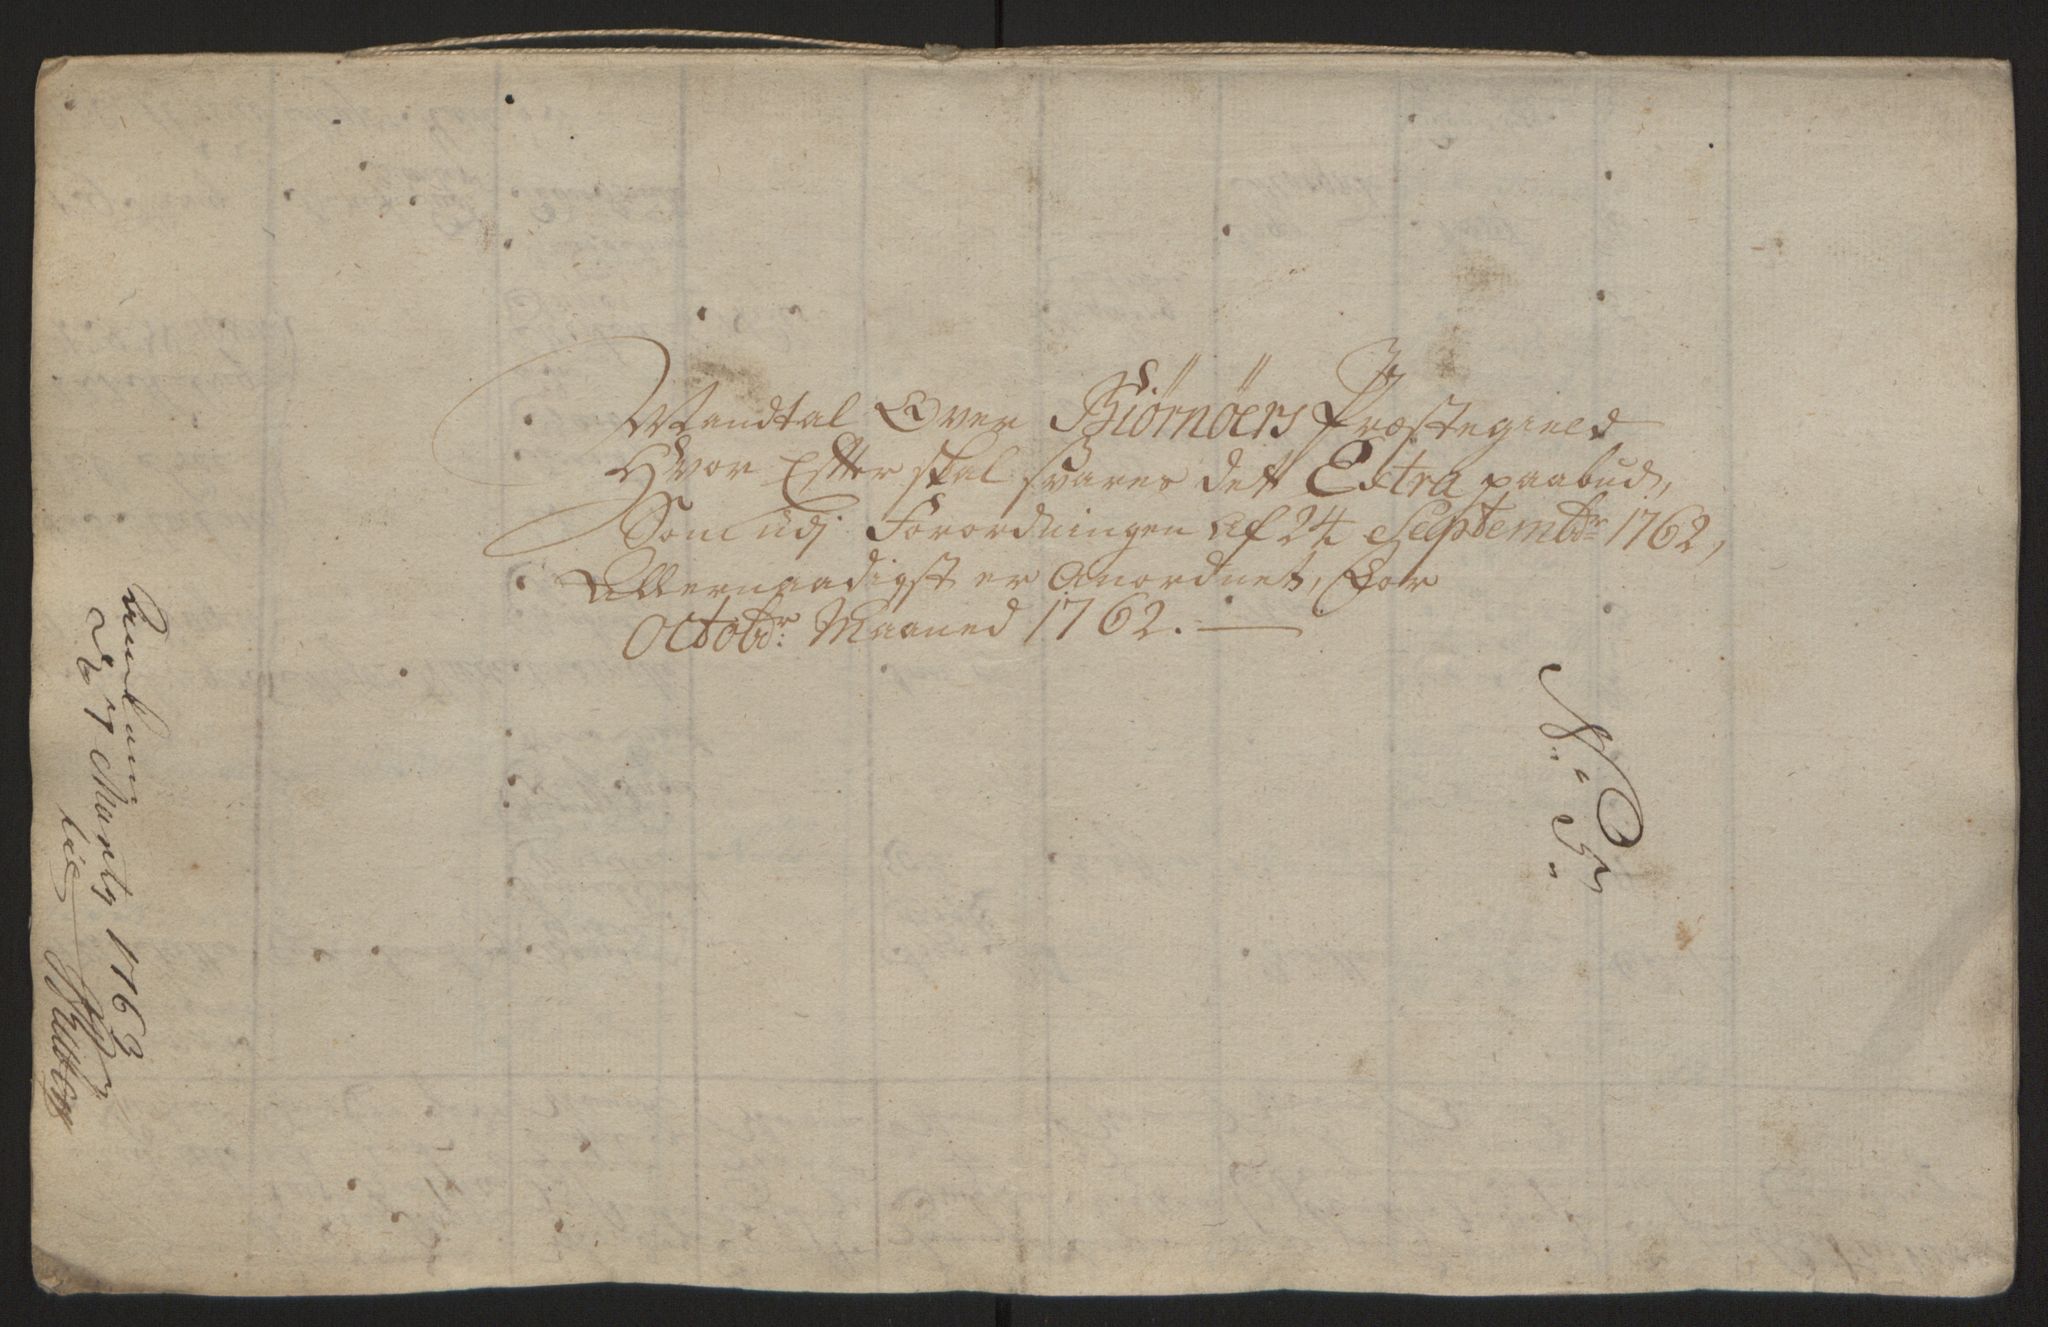 Mandtal Over Biørnøers Præstegield
Hvor Efter skal svares det Extra paabud,
Som udj Forordningen af 24 Septembr: 1762,
Allernaadigst er Anordnet, For
Octobr: Maaned 1762.
N: 3
d. 7 Marty 1763